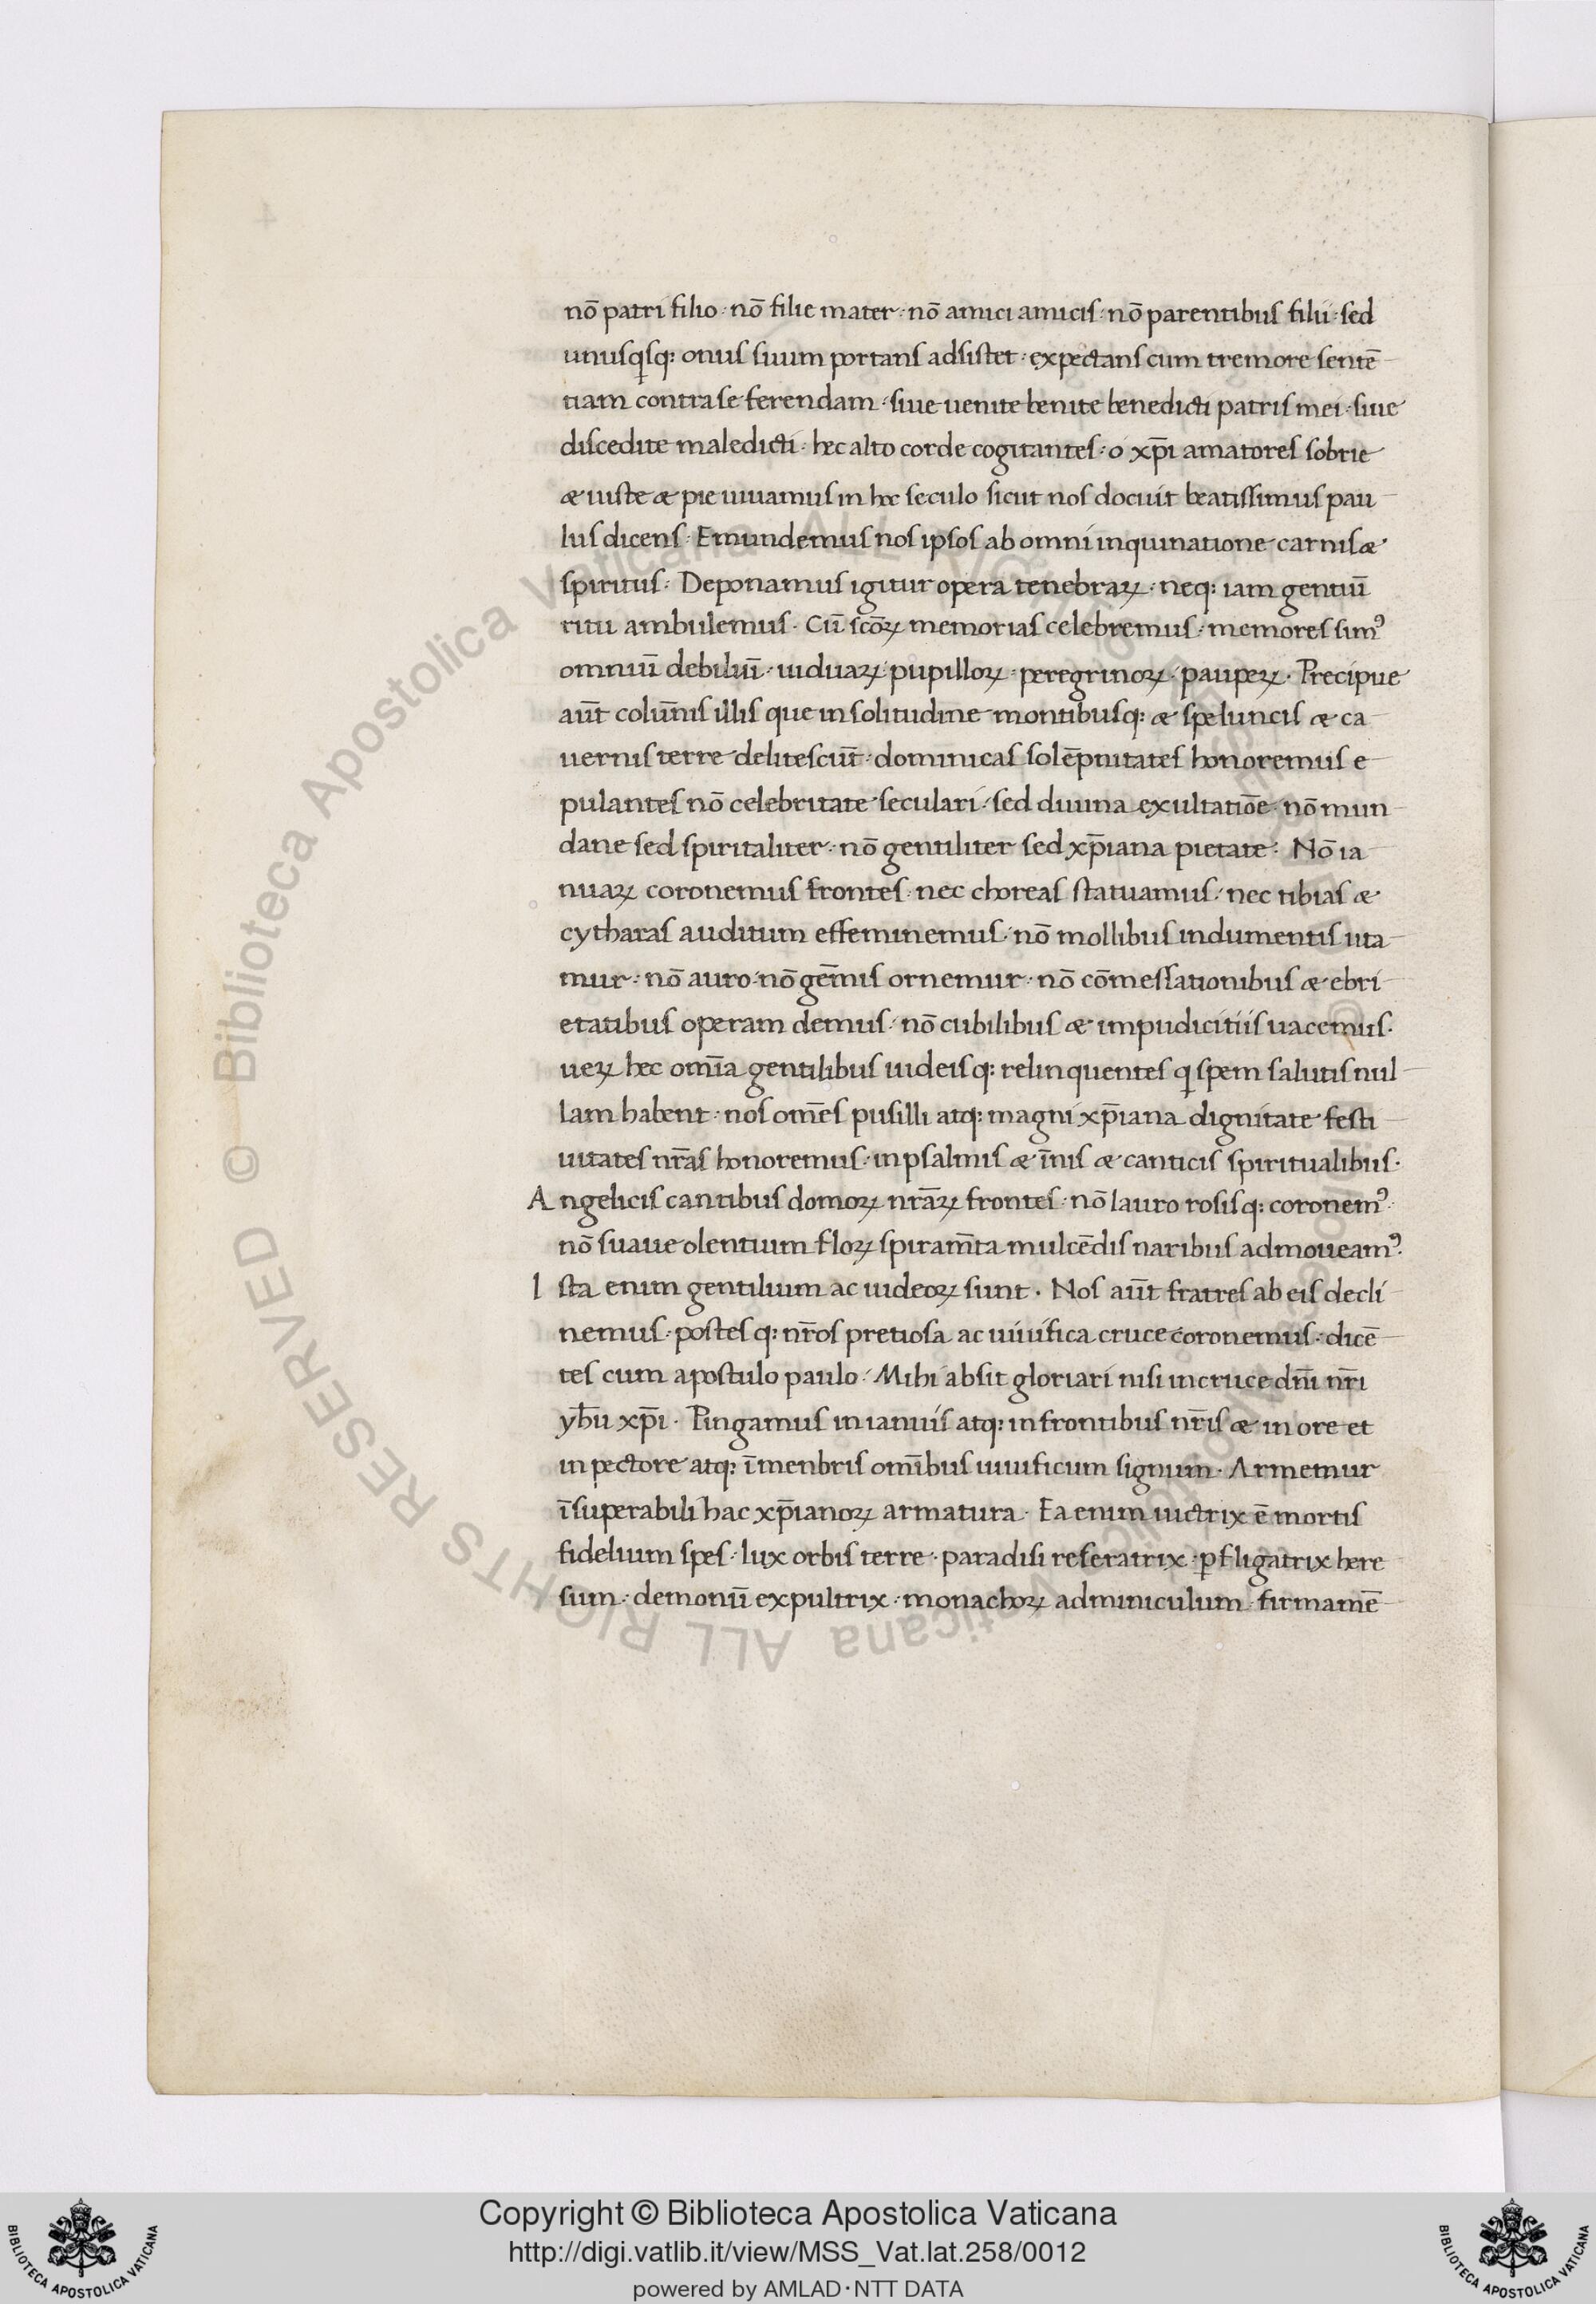 nō patri filio · nō filie mater · nō amici amicis · nō parentibus filii · sed
unusqisq: onus suum portans adsistet · expectans cum tremore sentē
tiam contra se ferendam · siue uenite benite benedicti patris mei · siue
discedite maledicti · hec alto corde cogitantes · o xp̄i amatores sobrie
æ iuste æ pie uiuamus in hoc seculo sicut nos docuit beatissimus pau
lus dicens · Emundemus nos ipsos ab omni inquinatione carnis æ
spiritus · Deponamus igitur opera tenebraꝝ · neq: iam gentiū
ritu ambulemus · Cū scōꝝ memorias celebremus · memores simꝰ
omniū debiliū · uiduaꝝ · pupilloꝝ · peregrinoꝝ · paupeꝝ · Precipue
aūt colūnis illis que in solitudine montibusq: æ speluncis æ ca
uernis terre delitescūt · dominicas solēpnitates honoremus e
pulantes nō celebritate seculari · sed diuina exultatiōe · nō mun
dane sed spiritaliter · nō gentiliter sed xp̄iana pietate · Nō ia
nuaꝝ coronemus frontes · nec choreas statuamus · nec tibias æ
cytharas auditum effeminemus · nō mollibus indumentis uta
mur · nō auro · nō gēmis ornemur · nō cōmessationibus æ ebri
etatibus operam demus · nō cubilibus æ impudicitiis uacemus ·
ueꝝ hec om̄ia gentilibus iudeisq: relinquentes qi spem salutis nul
lam habent · nos om̄es pusilli atq: magni xp̄iana dignitate festi
uitates nr̄as honoremus · in psalmis æ īnis æ canticis spiritualibus ·
Angelicis cantibus domoꝝ nrāꝝ frontes · nō lauro rosisq: coronemꝰ ·
nō suaue olentium floꝝ spiram̄ta mulcēdis naribus admoueamꝰ ·
Ista enim gentilium ac iudeoꝝ sunt · Nos aūt fratres ab eis decli
nemus · postesq: nr̄os pretiosa ac uiuifica cruce coronemus · dicē
tes cum apostulo paulo · Mihi absit gloriari nisi in cruce dn̄i nr̄i
yh̄u xp̄i · Pingamus in ianuis atq: in frontibus nr̄is æ in ore et
in pectore atq: ī menbris om̄ibus uiuificum signum · Armemur
īsuperabili hac xp̄ianoꝝ armatura · Ea enim uictrix ē mortis
fidelium spes · lux orbis terre · paradisi reseratrix · ꝓfligatrix here
sium · demoniū expultrix · monachoꝝ adminiculum · firmamē
Biblioteca Apostolica Vaticana ALL RIGHTS RESERVED ©
Copyright © Biblioteca Apostolica Vaticana
http://digi.vatlib.it/view/MSS_Vat.lat.258/0012
powered by AMLAD·NTT DATA
BIBLIOTECA APOSTOLICA VATICANA
BIBLIOTECA APOSTOLICA VATICANA